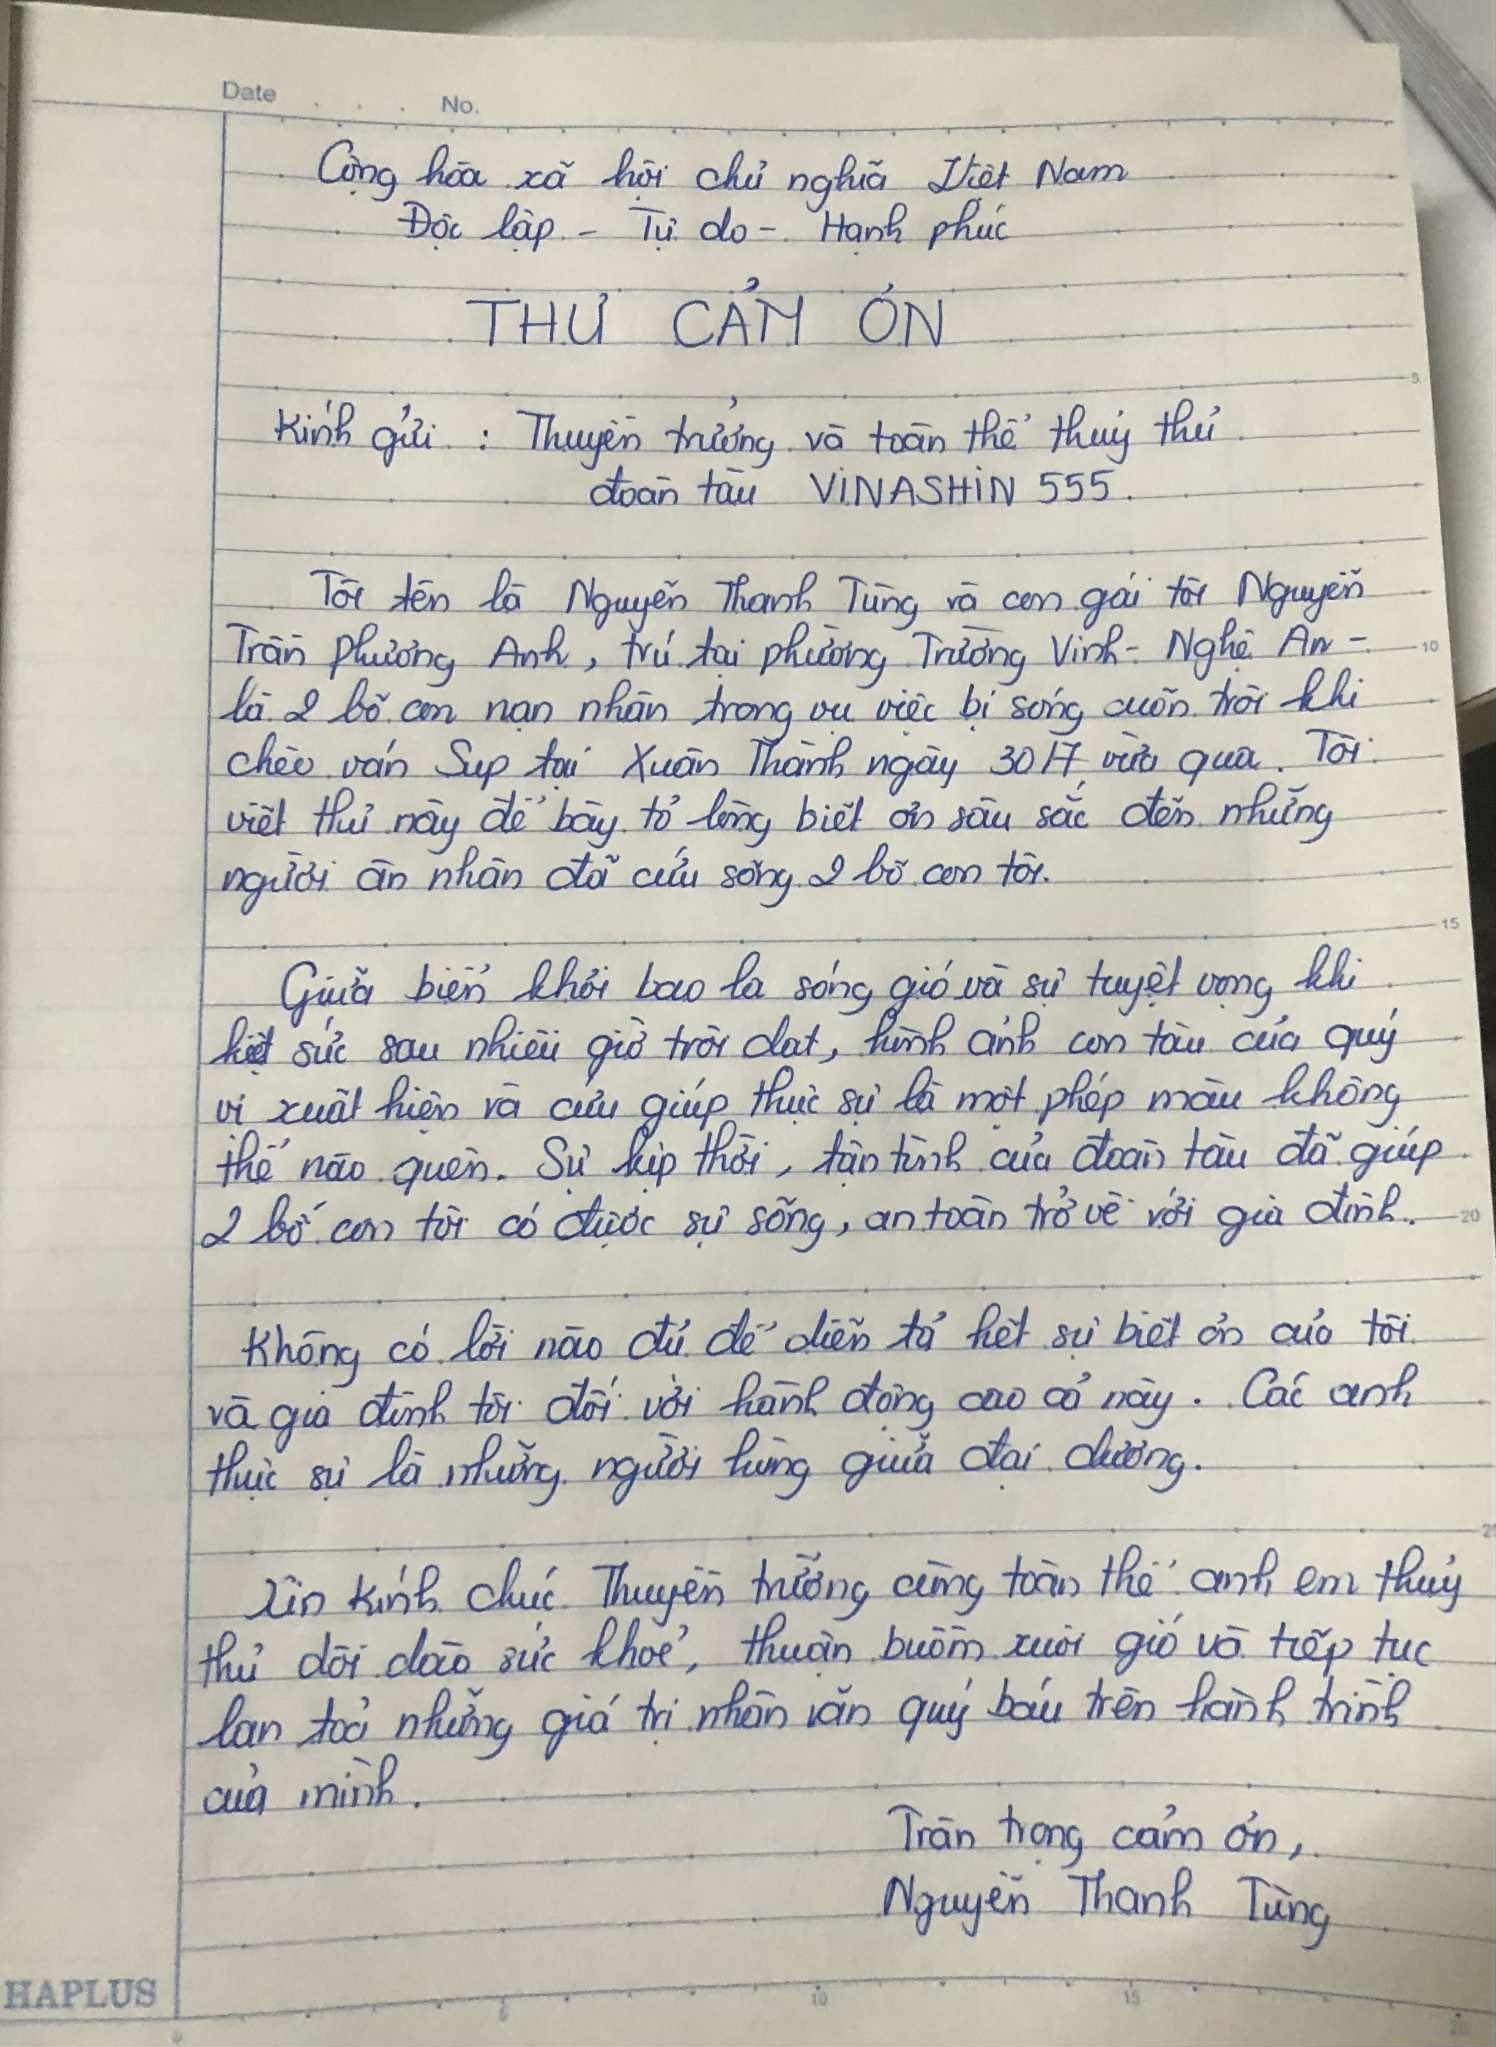 Date . . . No.
Cộng hòa xã hội chủ nghĩa Việt Nam
Độc lập - Tự do - Hạnh phúc
THƯ CẢM ƠN
5
Kính gửi : Thuyền trưởng và toàn thể thuỷ thủ
đoàn tàu VINASHIN 555.
Tôi tên là Nguyễn Thanh Tùng và con gái tôi Nguyễn
Trần Phương Anh, trú tại phường Trường Vinh - Nghệ An -
10
là 2 bố con nạn nhân trong vụ việc bị sóng cuốn trôi khi
chèo ván Sup tại Xuân Thành ngày 30/7 vừa qua. Tôi
viết thư này để bày tỏ lòng biết ơn sâu sắc đến những
người ân nhân đã cứu sống 2 bố con tôi.
15
Giữa biển khơi bao la sóng gió và sự tuyệt vọng khi
kiệt sức sau nhiều giờ trôi dạt, hình ảnh con tàu của quý
vị xuất hiện và cứu giúp thực sự là một phép màu không
thể nào quên. Sự kịp thời, tận tình của đoàn tàu đã giúp
2 bố con tôi có được sự sống, an toàn trở về với gia đình.
20
Không có lời nào đủ để diễn tả hết sự biết ơn của tôi
và gia đình tôi đối với hành động cao cả này. Các anh
thực sự là những người hùng giữa đại dương.
25
Xin kính chúc Thuyền trưởng cùng toàn thể anh em thuỷ
thủ dồi dào sức khoẻ, thuận buồm xuôi gió và tiếp tục
lan toả những giá trị nhân văn quý báu trên hành trình
của mình.
Trân trọng cảm ơn,
Nguyễn Thanh Tùng
HAPLUS
0 5 10 15 20